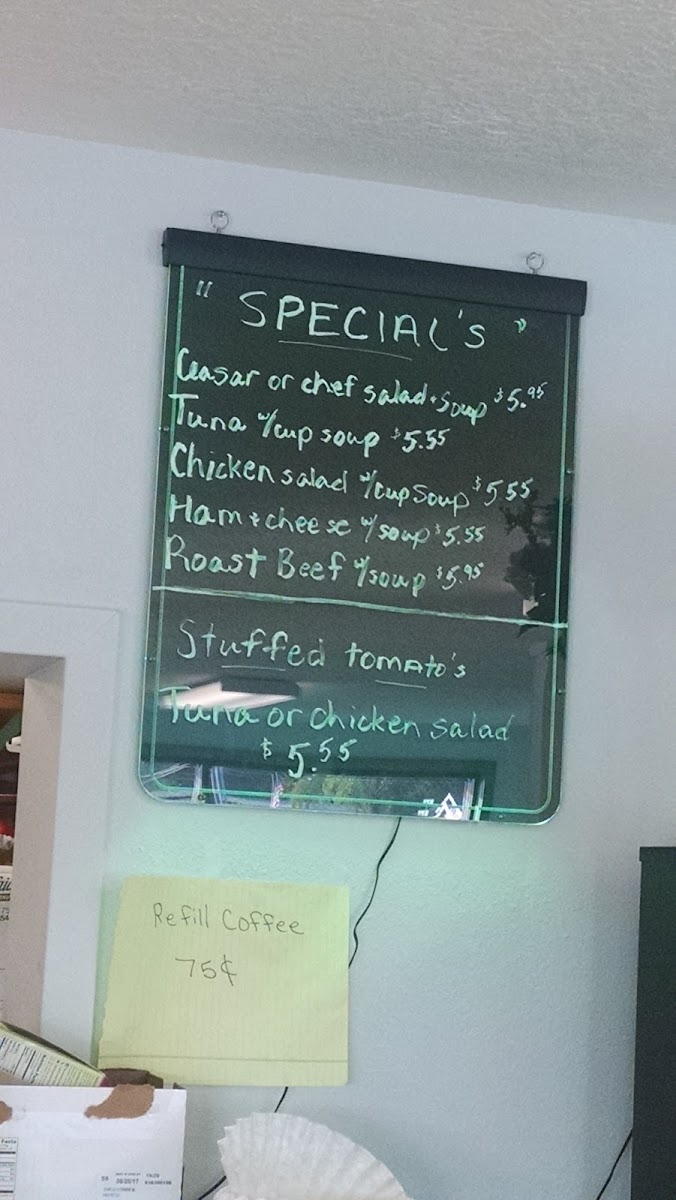 " SPECIAL's "
Ceasar or chef salad + soup $5.95
Tuna w/cup soup $5.55
Chicken salad w/cup soup $5.55
Ham + cheese w/ soup $5.55
Roast Beef w/soup $5.95
Stuffed tomato's
Tuna or chicken salad
$5.55
Refill Coffee
75¢